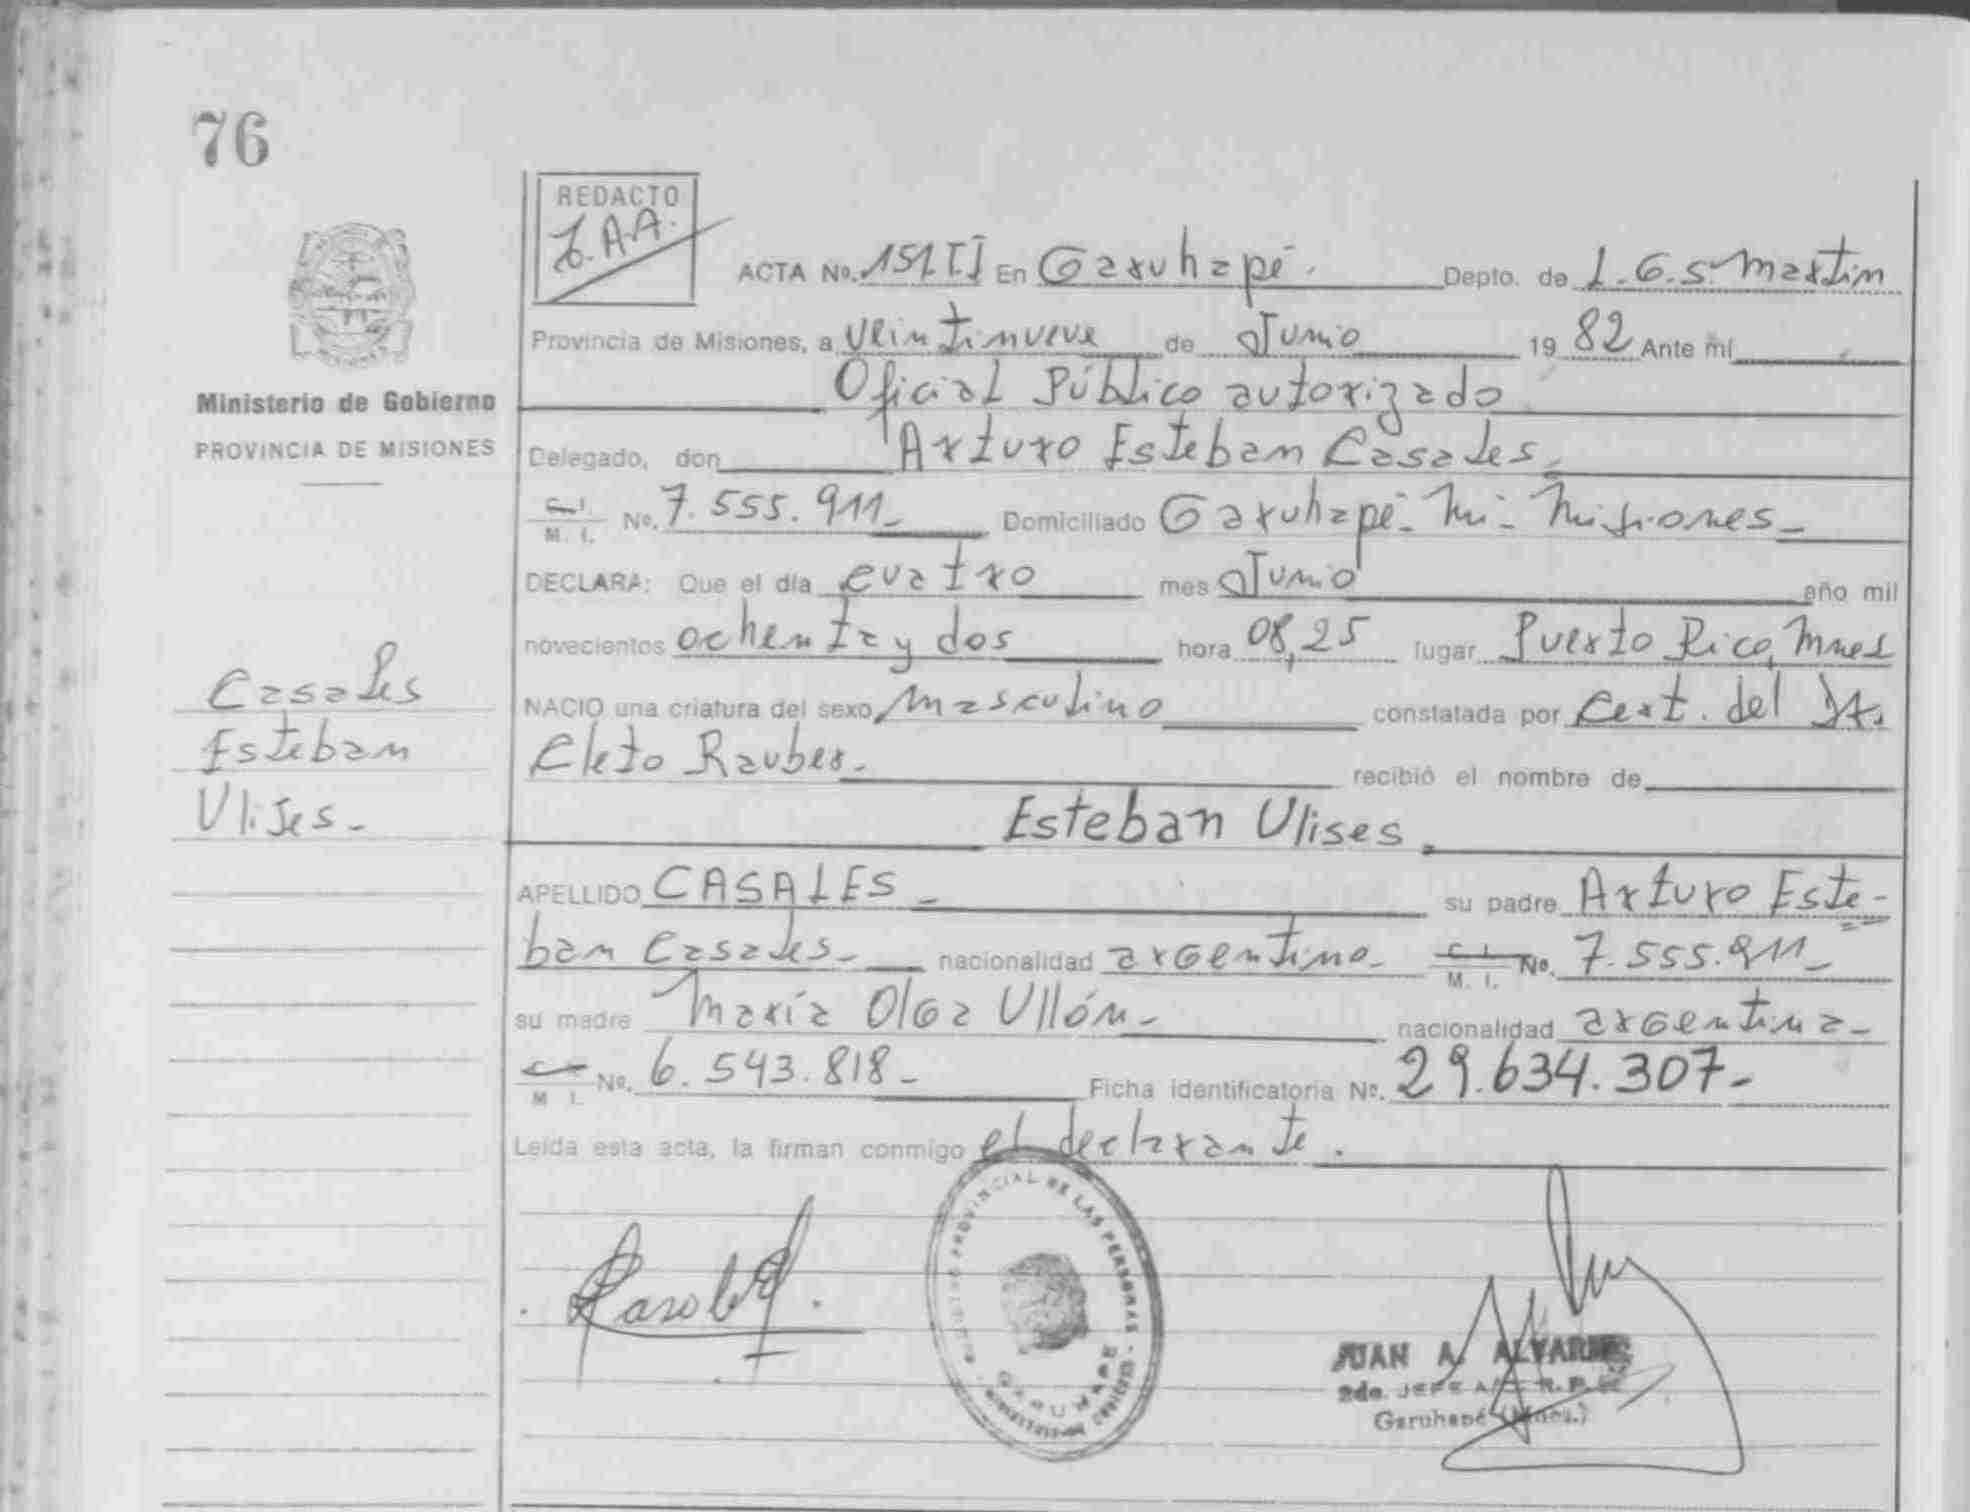 76
REDACTO
J.A.A.
ACTA No. 151 TI En Garuhapé. Depto. de L.G.S. Martin
Provincia de Misiones, a veintinueve de Junio 19 82 Ante mí
Oficial Público autorizado
Ministerio de Gobierno
PROVINCIA DE MISIONES
Delegado, don Arturo Esteban Casales.
C. I. M. I. No. 7.555.911- Domiciliado Garuhapé- Mi- Misiones-
DECLARA: Que el día cuatro mes Junio año mil
novecientos ochenta y dos hora 08,25 lugar Puerto Rico, Mnes
NACIO una criatura del sexo masculino constatada por Cert. del Dr.
Cleto Rauber. recibió el nombre de
Esteban Ulises.
Casales
Esteban
Ulises-
APELLIDO CASALES- su padre Arturo Este-
ban Casales- nacionalidad argentino- C. I. M. I. No. 7.555.911-
su madre María Olga Ullón- nacionalidad argentina-
M. I. No. 6.543.818- Ficha identificatoria No. 29.634.307-
Leída esta acta, la firman conmigo el declarante.
PROVINCIAL DE LAS PERSONAS
GARUHAPE
JUAN A. ALVAREZ
2do. JEFE
Garuhapé (Mnes.)